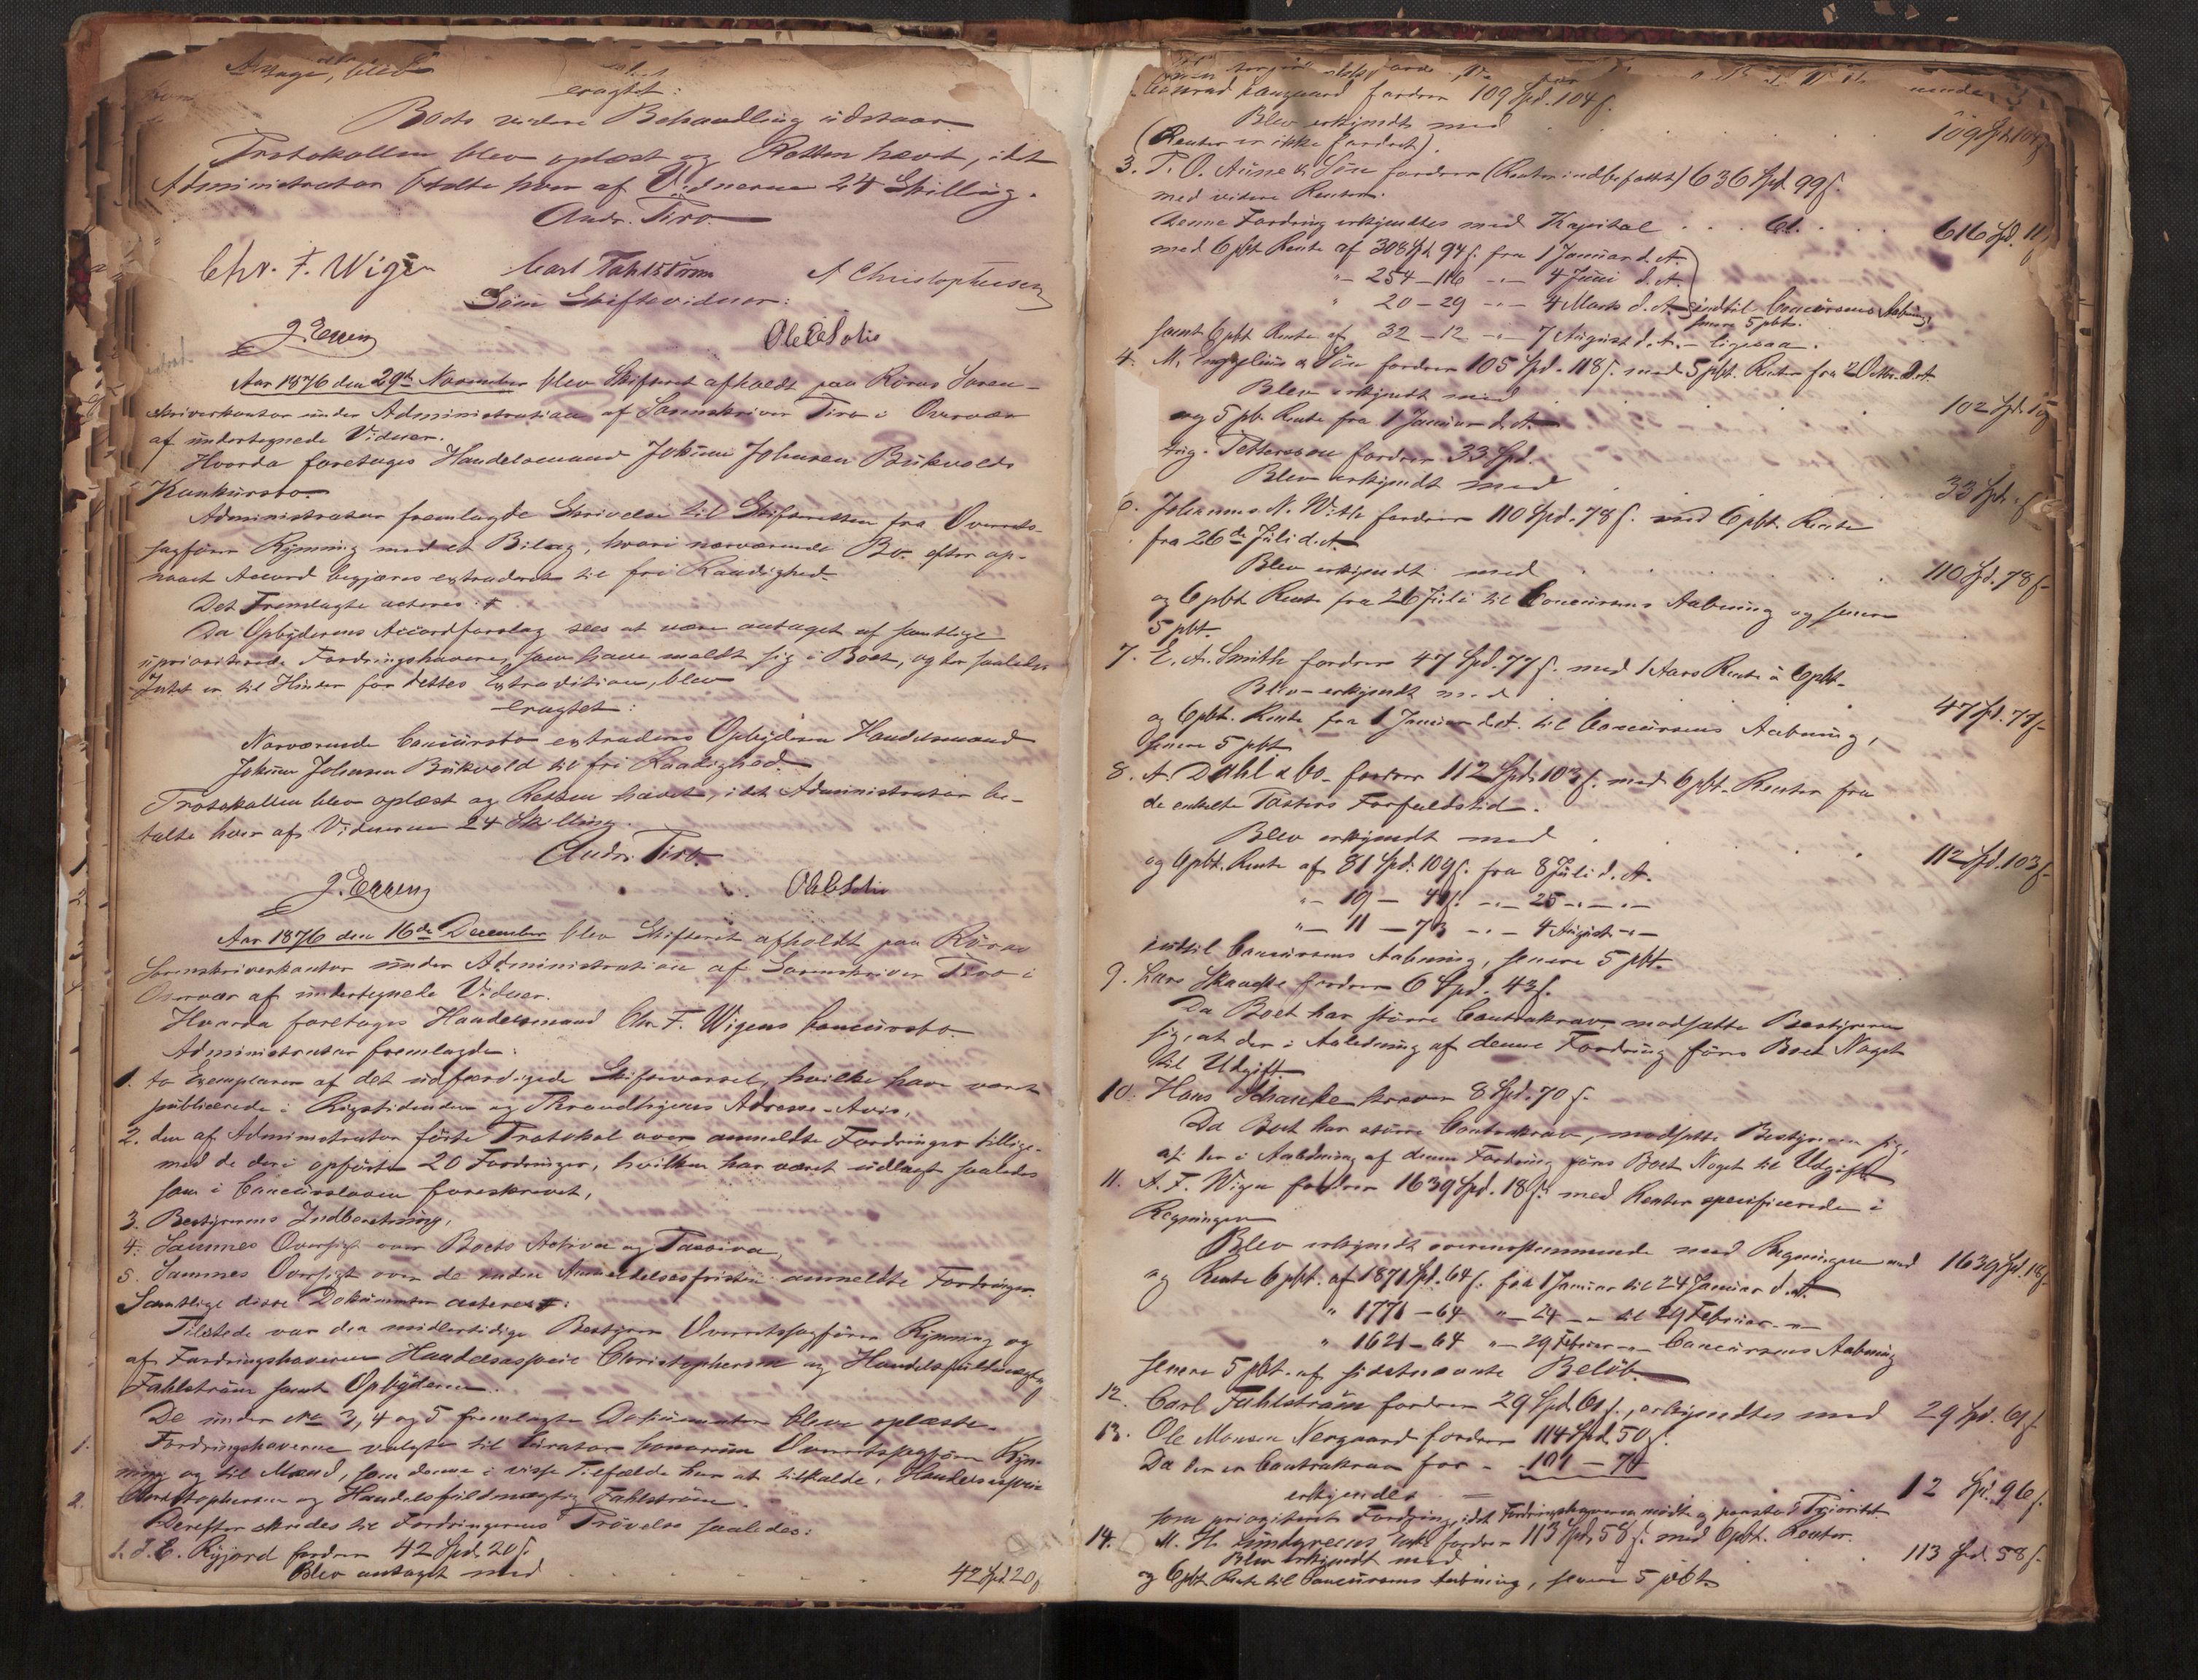 eragtet:
Boets videre Behandling udstaar.
Protokollen blev oplæst og Retten hævet, idet
Administrator betalte hver af Vidnerne 24 Skilling.
Andr. Tiro
Chr. F. Wigen Carl Fahlström A Christophersen
Som Skiftevidner:
Aar 1876 den 29de November blev Skifteret afholdt paa Röros Soren-
skriverkontor under Administration af Sorenskriver Tiro i Overvær
af undertegnede Vidner.
Hvorda foretages Handelsmand Johnsen Bukvolds
Konkursbo
Administrator fremlagde Skrivelse til Skifteretten fra Overrets-
sagförer Rynning med et Bilag, hvori nærværende Bo efter op-
naaet Accord begjæres extraderet til fri Raadighed.
Det Fremlagte acteres:
Da Opbyderens Accordforslag sees at være antaget af samtlige
uprioriterede Fordringshavere, som have meldt sig i Boet, og der saaledes
Intet er til Hinder for dettes Extradition, blev
eragtet:
Nærværende Concursbo extraderes Opbyderen Handelsmand
Johnsen Bukvold til fri Raadighed.
Protokollen blev oplæst og Retten hævet, idet Administrator be-
talte hver af Vidnerne 24 Skilling.
Andr. Tiro
Aar 1876 den 16de December blev Skifteret afholdt paa Röros
Sorenskriverkontor under Administration af Sorenskriver Tiro i
Overvær af undertegnede Vidner.
Hvorda foretages Handelsmand Chr. F. Wigens Concursbo.
Administrator fremlagde:
1. to Exemplarer af det udfærdigede Skiftevarsel, hvilke have været
publicerede i Rigstidenden og Throndhjems Adresse-Avis,
2. den af Administrator förte Protokol over anmeldte Fordringer tillige-
med de deri opförte 20 Fordringer, hvilken har været udlagt saaledes
som i Concursloven foreskrevet,
3. Bestyrerens Indberetning,
4. Sammes Oversigt over Boets Activa og Passiva,
5. Sammes Oversigt over de inden Anmeldelsesfristen anmeldte Fordringer.
Samtlige disse Dokumenter acteres:
Tilstede var den midlertidige Bestyrer Overretssagförer Rynning og
af Fordringshaverne Handelsagent Christophersen og Handelsfuldmægtig
Fahlström samt Opbyderen.
De under No 3, 4 og 5 fremlagte Dokumenter bleve oplæste.
1. Fordringshaverne valgte til Curator bonorum Overretssagförer Ryn-
ning og til Mænd, som denne i visse Tilfælde har at tilkalde, Handelsagent
2. Christophersen og Handelsfuldmægtig Fahlström.
Derefter skredes til Fordringernes Prövelse saaledes:
fordrer 42 Spd. 20 s.
Blev antaget med . . . . . . 42 Spd 20 s
fordrer 109 Spd. 104 s.
Blev erkjendt med . . . . . . 109 Spd 104 s
(Renter er ikke fordret).
3. P. O. Aune & Sön fordrer (Renter indbefattet) 636 Spd. 99 s.
med videre Renter.
Denne Fordring erkjendtes med Kapital . . . 616 Spd. 11 s
med 6 pCt Rente af 308 Spd 94 s. fra 1 Januar d. A.
"– 254 – 116 –"– 4 Juni d. A.
" 20 – 29 –"– 4 Marts d. A. indtil Concursens Aabning,
senere 5 pCt.
samt 6 pCt Rente af 32 – 12 –"– 7 August d. A. – ligesaa.
4. M. & Sön fordrer 105 Spd. 118 s. med 5 pCt. Renter fra
Blev erkjendt med . . . . . 102 Spd.
og 5 pCt. Rente fra 1 Januar d. A.
fordrer 33 Spd.
Blev erkjendt med . . . . . 33 Spd. " s
6. Johannes N. fordrer 110 Spd. 78 s. med 6 pCt. Rente
fra 26de Juli d. A.
Blev erkjendt med . . . . . 110 Spd. 78 s
og 6 pCt Rente fra 26 Juli til Concursens Aabning og senere
5 pCt.
7. E. A. Smith fordrer 47 Spd. 77 s. med 1 Aars Rente à 6 pCt.
Blev erkjendt med . . . . . 47 Spd. 77 s
og 6 pCt. Rente fra 1 Januar d. A. til Concursens Aabning,
senere 5 pCt.
8. A. Dahl & Co. fordrer 112 Spd. 103 s. med 6 pCt. Renter fra
de enkelte Posters Forfaldstid.
Blev erkjendt med . . . . . 112 Spd. 103 s
og 6 pCt. Rente af 81 Spd. 109 s. fra 8 Juli d. A.
"– 19 – –"– 25 –"–
"– 11 – 73 –"– 4 August –"–
indtil Concursens Aabning, senere 5 pCt.
9. Lars Skancke fordrer 6 Spd. 43 s.
Da Boet har större Contrakrav, modsatte Bestyreren
sig, at der i Anledning af denne Fordring föres Boet Noget
til Udgift.
10. Hans Schancke krever 8 Spd. 70 s.
Da Boet har större Contrakrav, modsatte Bestyreren sig,
at der i Anledning af denne Fordring föres Boet Noget til Udgift.
11. A. F. Wigen fordrer 1639 Spd. 18 s. med Renter specificerede i
Regningen
Blev erkjendt overensstemmende med Regningen med 1639 Spd. 18 s
og Rente 6 pCt. af 1871 Spd. 64 s. fra 1 Januar til 24 Januar d. A.
" 1771 – 64 "– 24 –"– til 29 Februar –"–
" 1621 – 64 "– 29 Februar –"– Concursens Aabning
senere 5 pCt. af sidstnævnte Belöb.
12. Carl Fahlström fordrer 29 Spd. 61 s., erkjendtes med 29 Spd. 61 s
13. Ole Monsen Nergaard fordrer 114 Spd. 50 s.
Da der er Contrakrav for – 101 – 74
erkjendes – 12 Spd. 96 s.
som prioriteret Fordring, idet Fordringshaveren mödte og paastod Prioritet.
14. M. H. Lundgreens Enke fordrer 113 Spd. 58 s. med 6 pCt. Renter.
Blev erkjendt med . . . 113 Spd. 58 s.
og 6 pCt Rente til Concursens Aabning, senere 5 pCt.